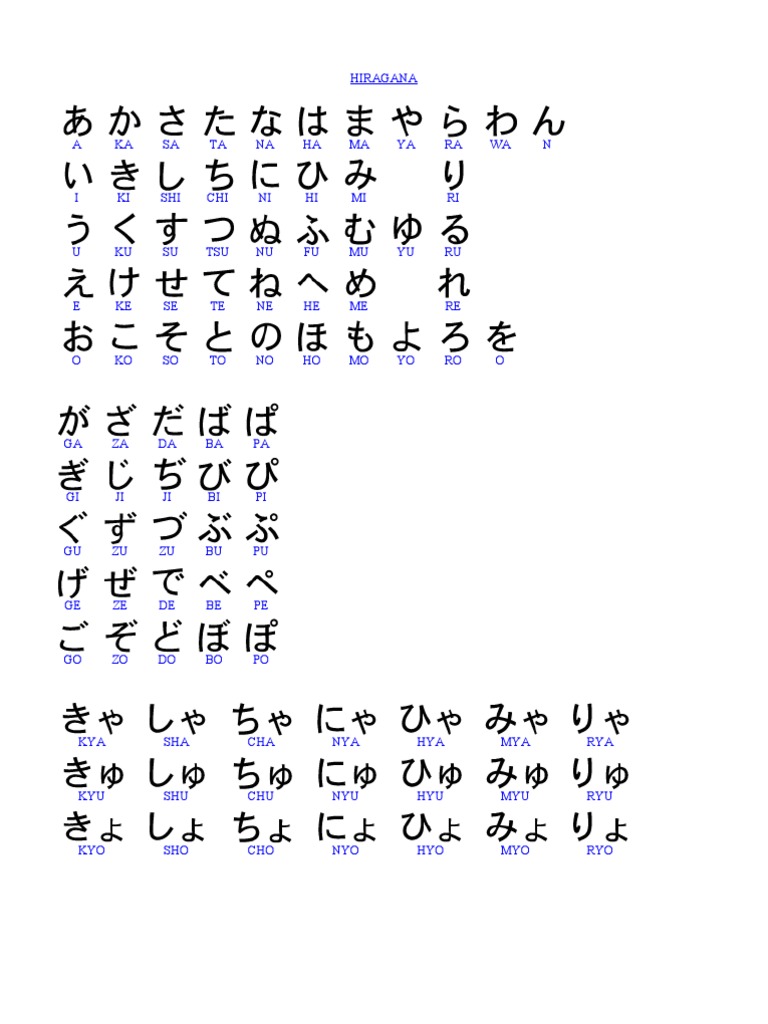 HIRAGANA
あ か さ た な は ま や ら わ ん
A KA SA TA NA HA MA YA RA WA N
い き し ち に ひ み り
I KI SHI CHI NI HI MI RI
う く す つ ぬ ふ む ゆ る
U KU SU TSU NU FU MU YU RU
え け せ て ね へ め れ
E KE SE TE NE HE ME RE
お こ そ と の ほ も よ ろ を
O KO SO TO NO HO MO YO RO O
が ざ だ ば ぱ
GA ZA DA BA PA
ぎ じ ぢ び ぴ
GI JI JI BI PI
ぐ ず づ ぶ ぷ
GU ZU ZU BU PU
げ ぜ で べ ぺ
GE ZE DE BE PE
ご ぞ ど ぼ ぽ
GO ZO DO BO PO
きゃ しゃ ちゃ にゃ ひゃ みゃ りゃ
KYA SHA CHA NYA HYA MYA RYA
きゅ しゅ ちゅ にゅ ひゅ みゅ りゅ
KYU SHU CHU NYU HYU MYU RYU
きょ しょ ちょ にょ ひょ みょ りょ
KYO SHO CHO NYO HYO MYO RYO